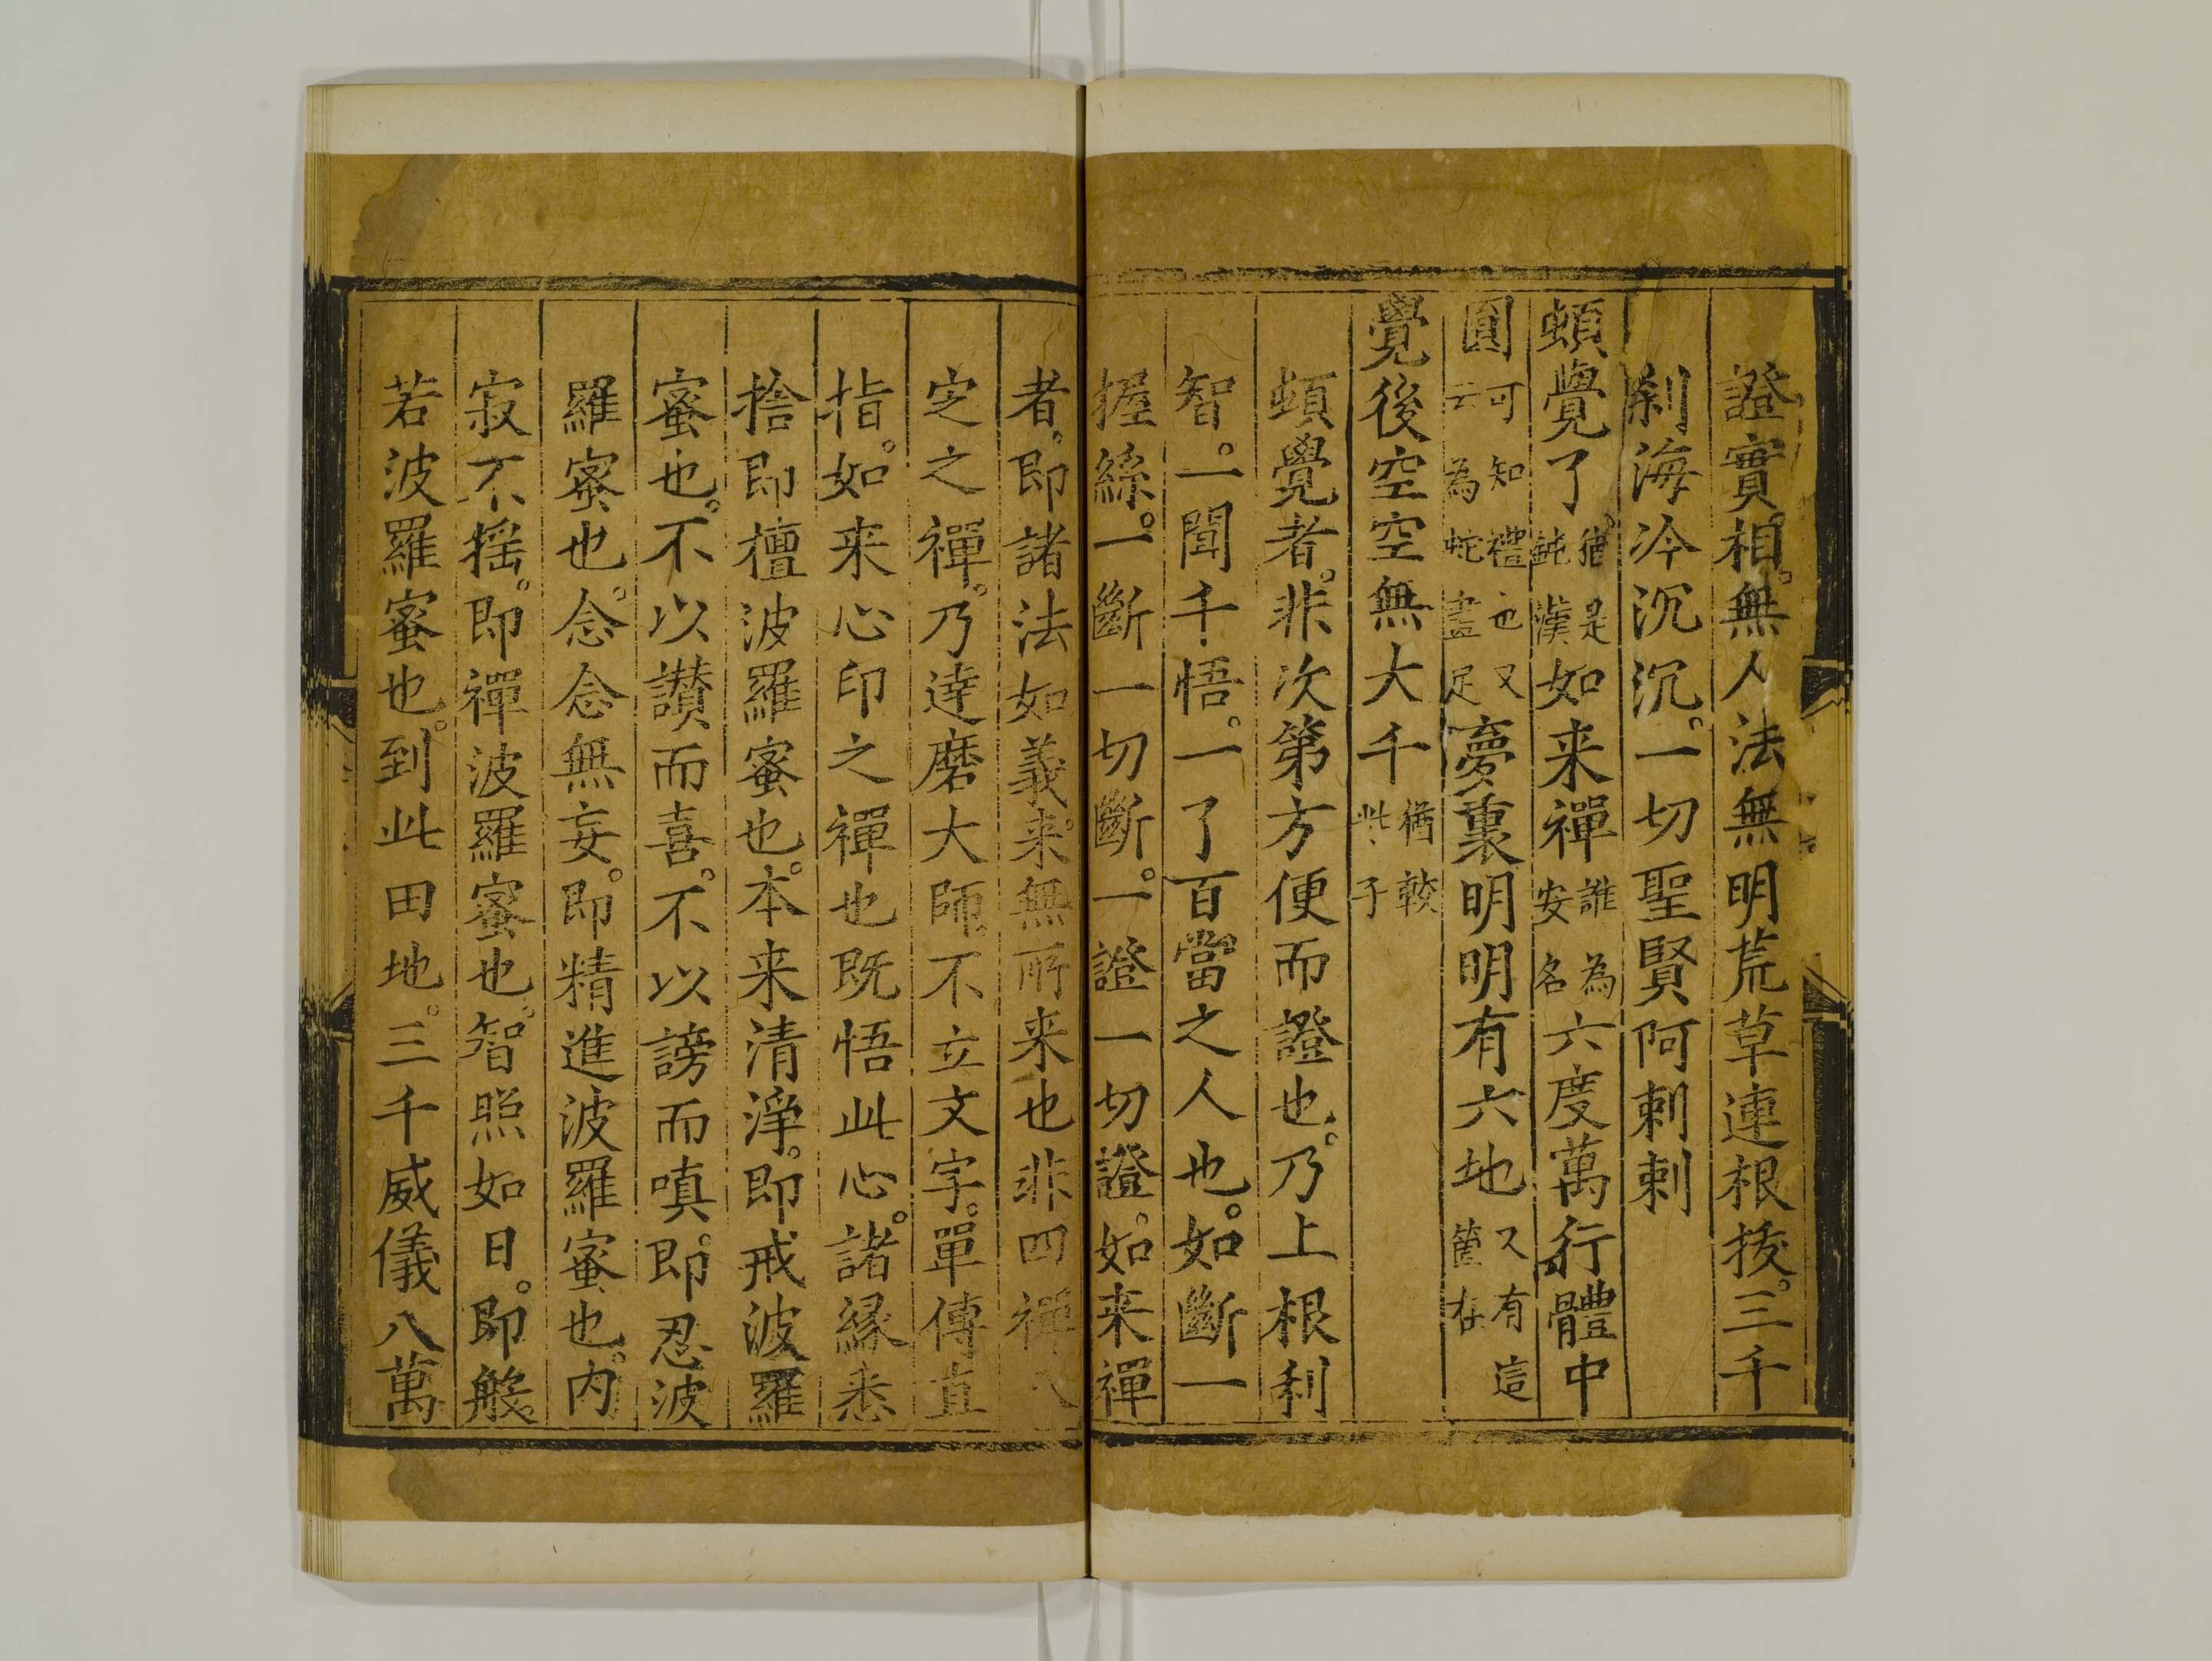 證實相。無人法無明荒草連根拔。三千
刹海冷沉沉。一切聖賢阿剌剌
頓覺了。猶是鈍漢如来禪誰為安名六度萬行體中
圓可知禮也又云為蛇畫足夢裏明明有六地又有這箇在
覺後空空無大千猶較些子
頓覺者。非次第方便而證也。乃上根利
智。一聞千悟。一了百當之人也。如斷一
握絲。一斷一切斷。一證一切證。如来禪
者。即諸法如義来。無所来也非四禪八
定之禪。乃達磨大師。不立文字。單傳直
指。如来心印之禪也既悟此心。諸緣悉
捨即檀波羅蜜也。本来清淨。即戒波羅
蜜也。不以讃而喜。不以謗而嗔。即忍波
羅蜜也。念念無妄。即精進波羅蜜也。内
寂不揺。即禪波羅蜜也。智照如日。即般
若波羅蜜也。到此田地。三千威儀八萬